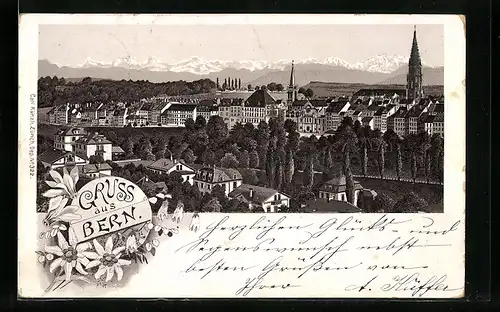 Carl Künzli, Zürich, Dep. No 1322.
GRUSS
aus
BERN.
Herzlichen Glücks- und
Segenswunsch nebst
besten Grüßen von
Ihrer A. Küffer